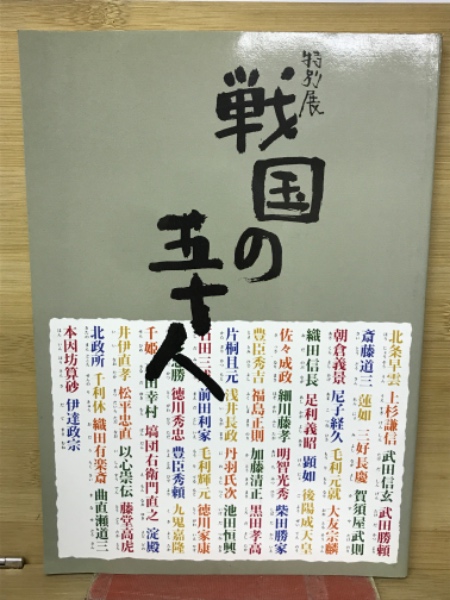 特別展
戦国の
五十人
北条早雲 上杉謙信 武田信玄 武田勝頼
斎藤道三 蓮如 三好長慶 賀須屋武則
朝倉義景 尼子経久 毛利元就 大友宗麟
織田信長 足利義昭 顕如 後陽成天皇
佐々成政 細川藤孝 明智光秀 柴田勝家
豊臣秀吉 福島正則 加藤清正 黒田孝高
片桐且元 浅井長政 丹羽氏次 池田恒興
石田三 前田利家 毛利輝元 徳川家康
忠勝 徳川秀忠 豊臣秀頼 九鬼嘉隆
千姫 田幸村 塙団右衛門直之 淀殿
井伊直孝 松平忠直 以心崇伝 藤堂高虎
北政所 千利休 織田有楽斎 曲直瀬道三
本因坊算砂 伊達政宗